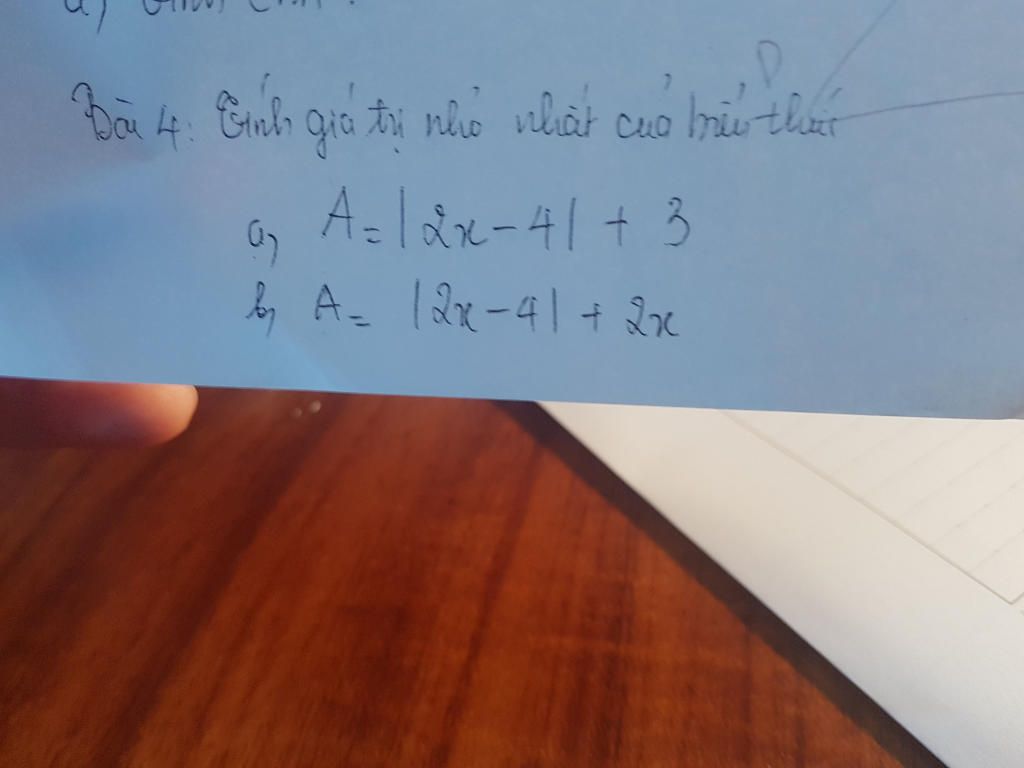 Bài 4: Tính giá trị nhỏ nhất của biểu thức
a, A = |2x - 4| + 3
b, A = |2x - 4| + 2x